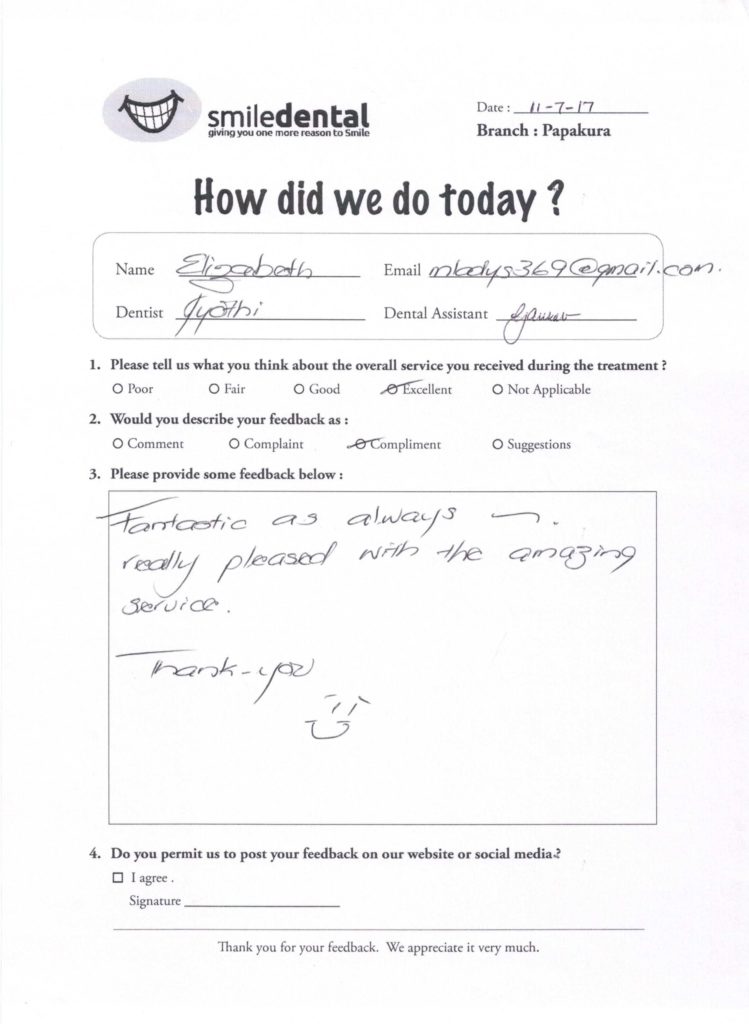 smiledental
giving you one more reason to Smile
Date : 11-7-17
Branch : Papakura
How did we do today ?
Name Elizabeth Email mladys369@gmail.com.
Dentist Jyothi Dental Assistant
1. Please tell us what you think about the overall service you received during the treatment ?
Poor Fair Good Excellent Not Applicable
2. Would you describe your feedback as :
Comment Complaint Compliment Suggestions
3. Please provide some feedback below :
Fantastic as always —.
really pleased with the amazing
service.
Thank-you
4. Do you permit us to post your feedback on our website or social media.?
I agree .
Signature
Thank you for your feedback. We appreciate it very much.